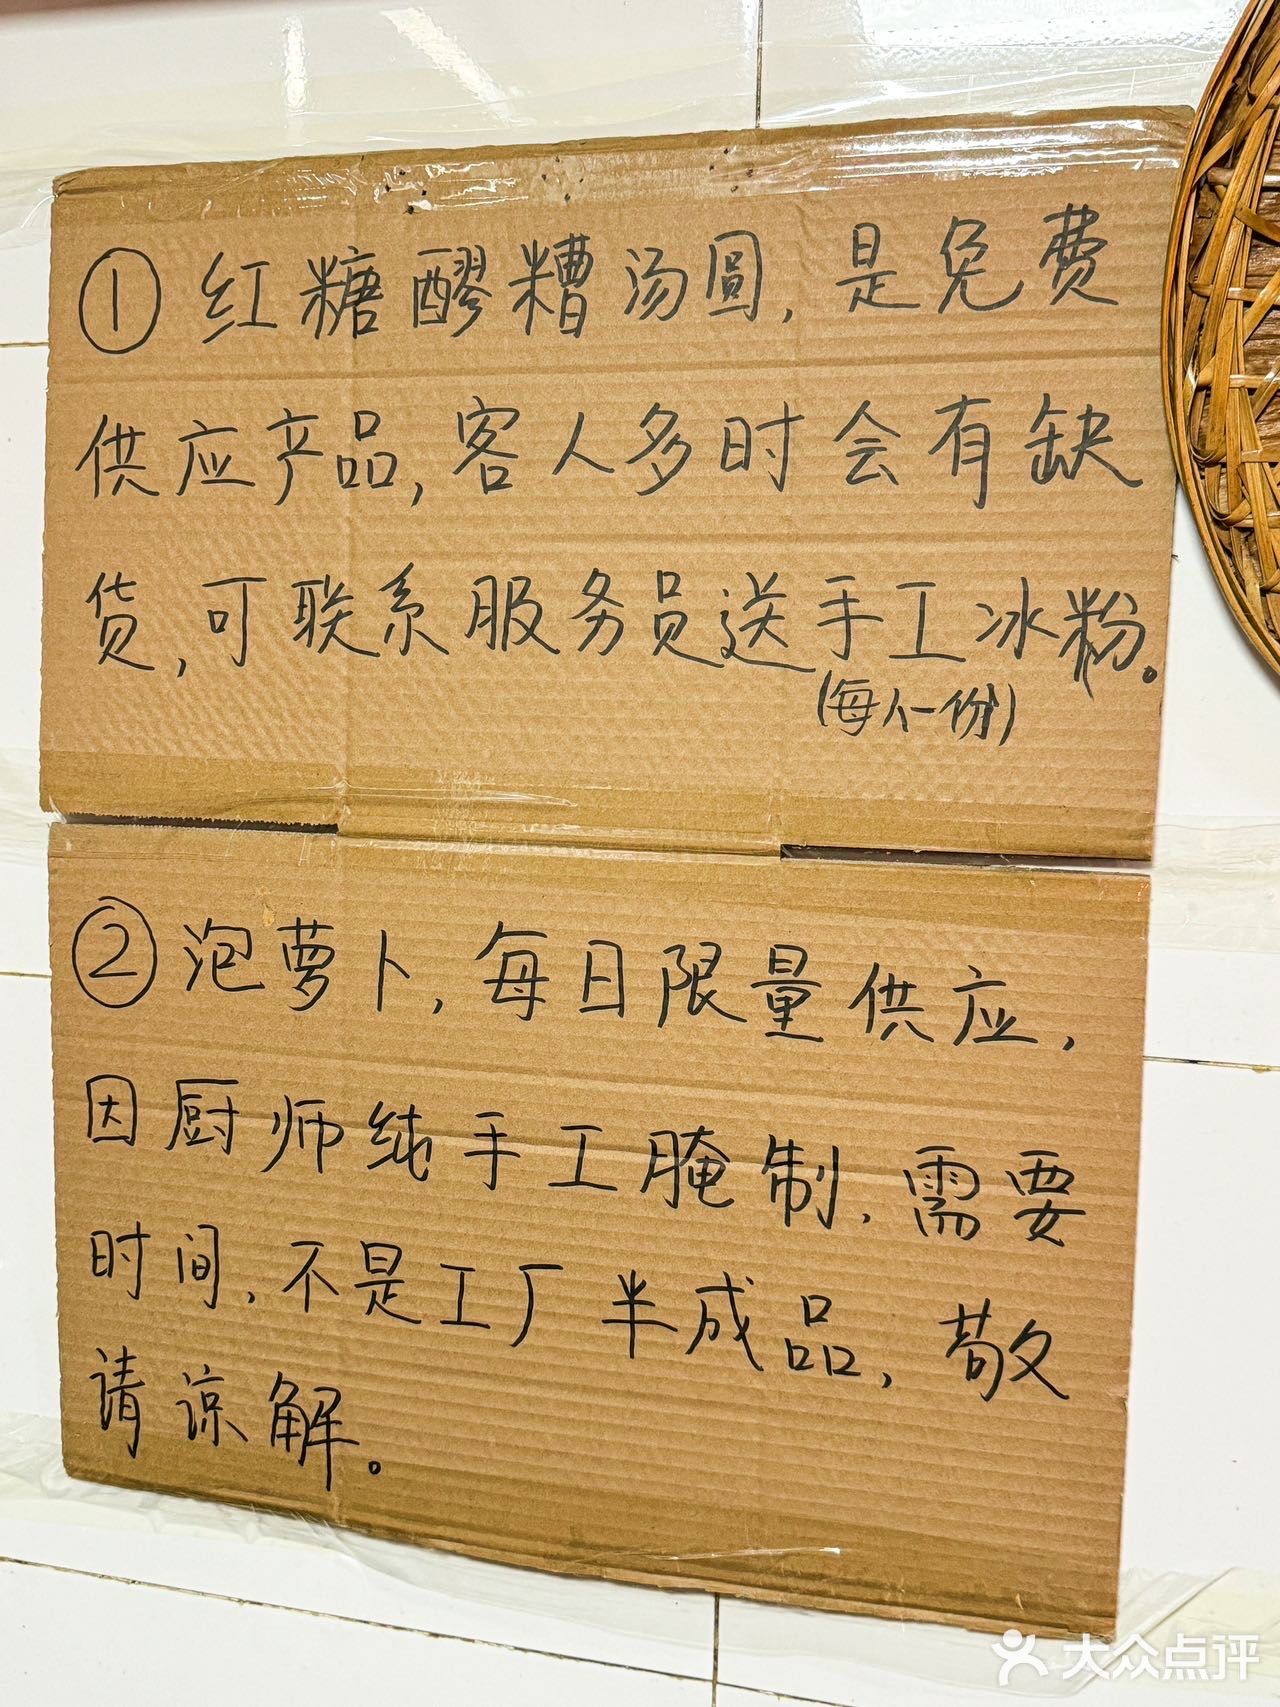 ① 红糖醪糟汤圆,是免费
供应产品,客人多时会有缺
货,可联系服务员送手工冰粉。
(每人一份)
② 泡萝卜,每日限量供应,
因厨师纯手工腌制,需要
时间,不是工厂半成品,敬
请谅解。
大众点评